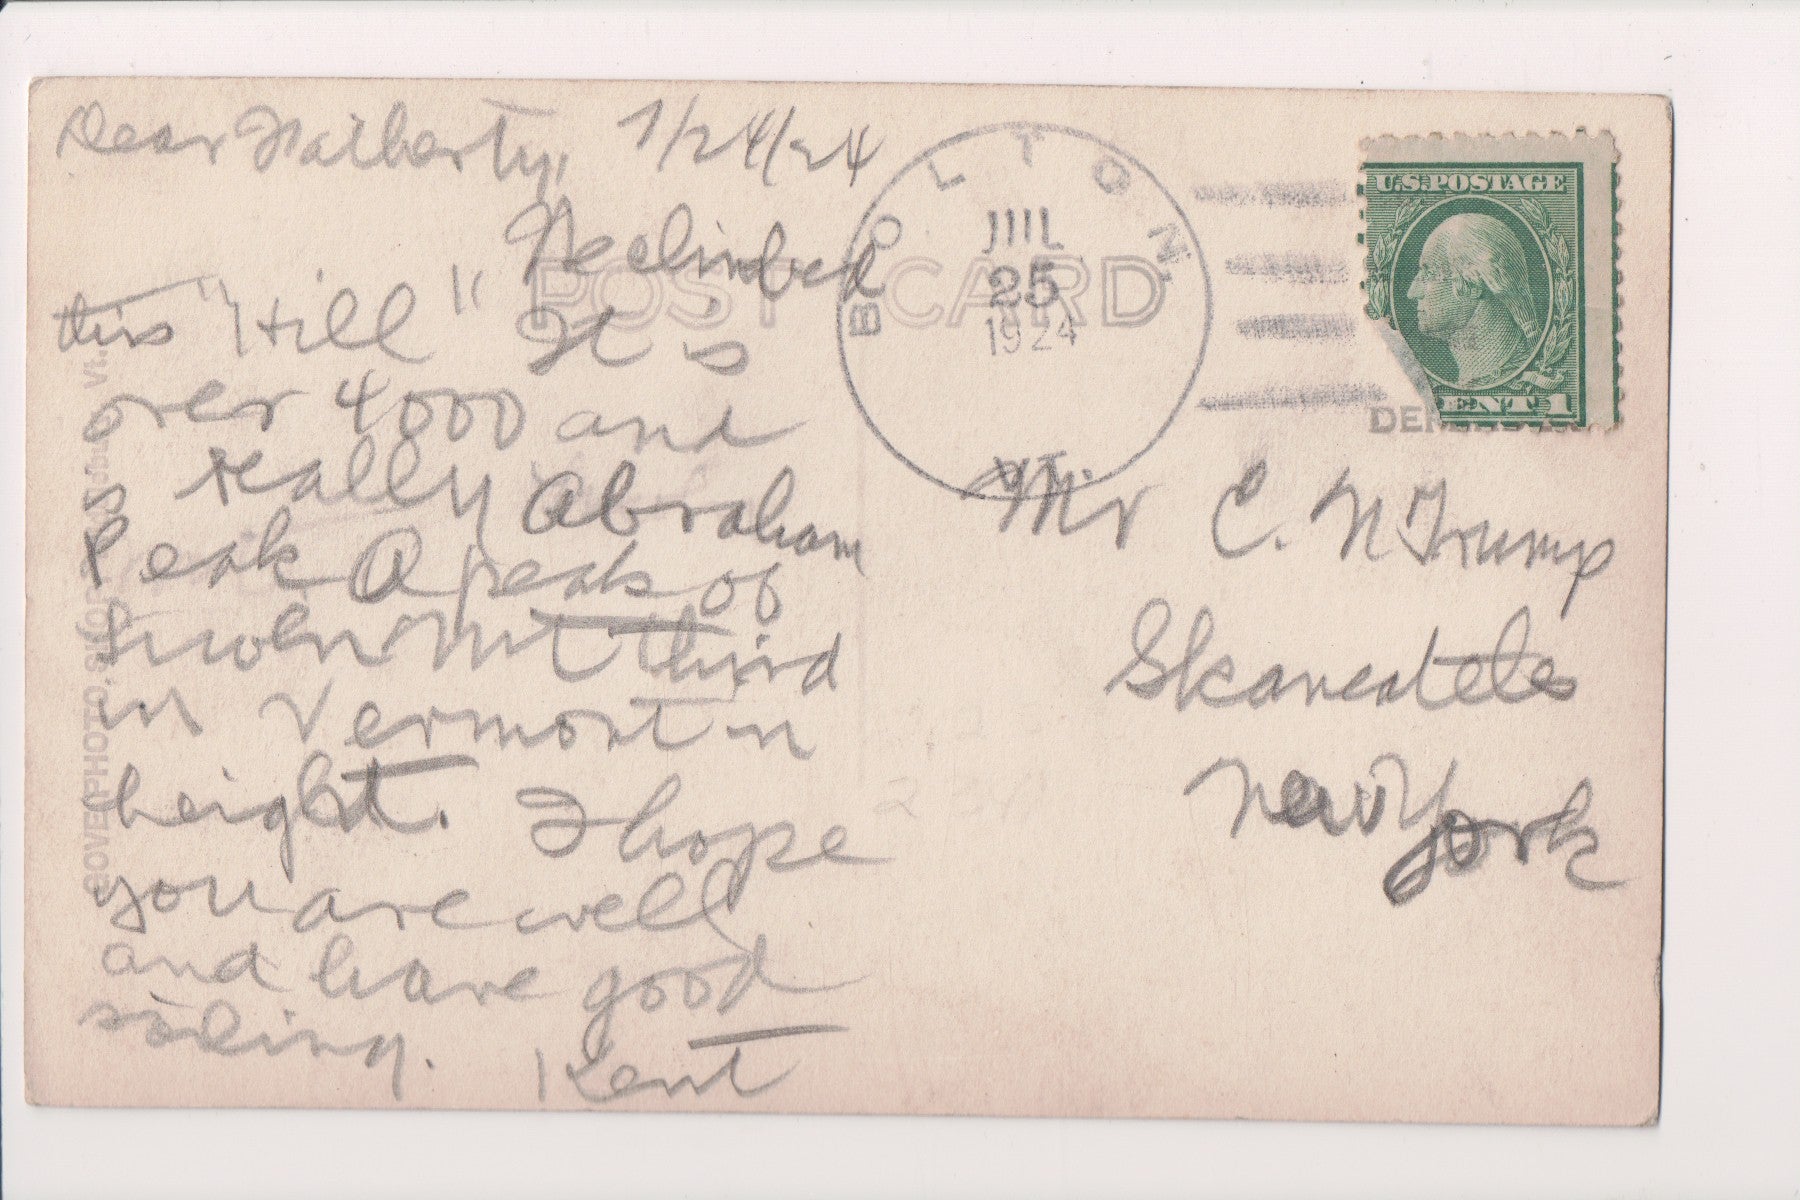 Dear Flaiberty, 7/24/24
We climbed
this "Hill" It is
over 4000 and
is really Abraham
Peak A peak of
Lincoln Mt third
in Vermont in
height. I hope
you are well
and have good
sailing. Kent
POST CARD
BOLTON
JUL
25
1924
VT.
U.S. POSTAGE
CENT 1
Mr C. N Trump
Skaneateles
New York
GOVE PHOTO. SHOP
VT.